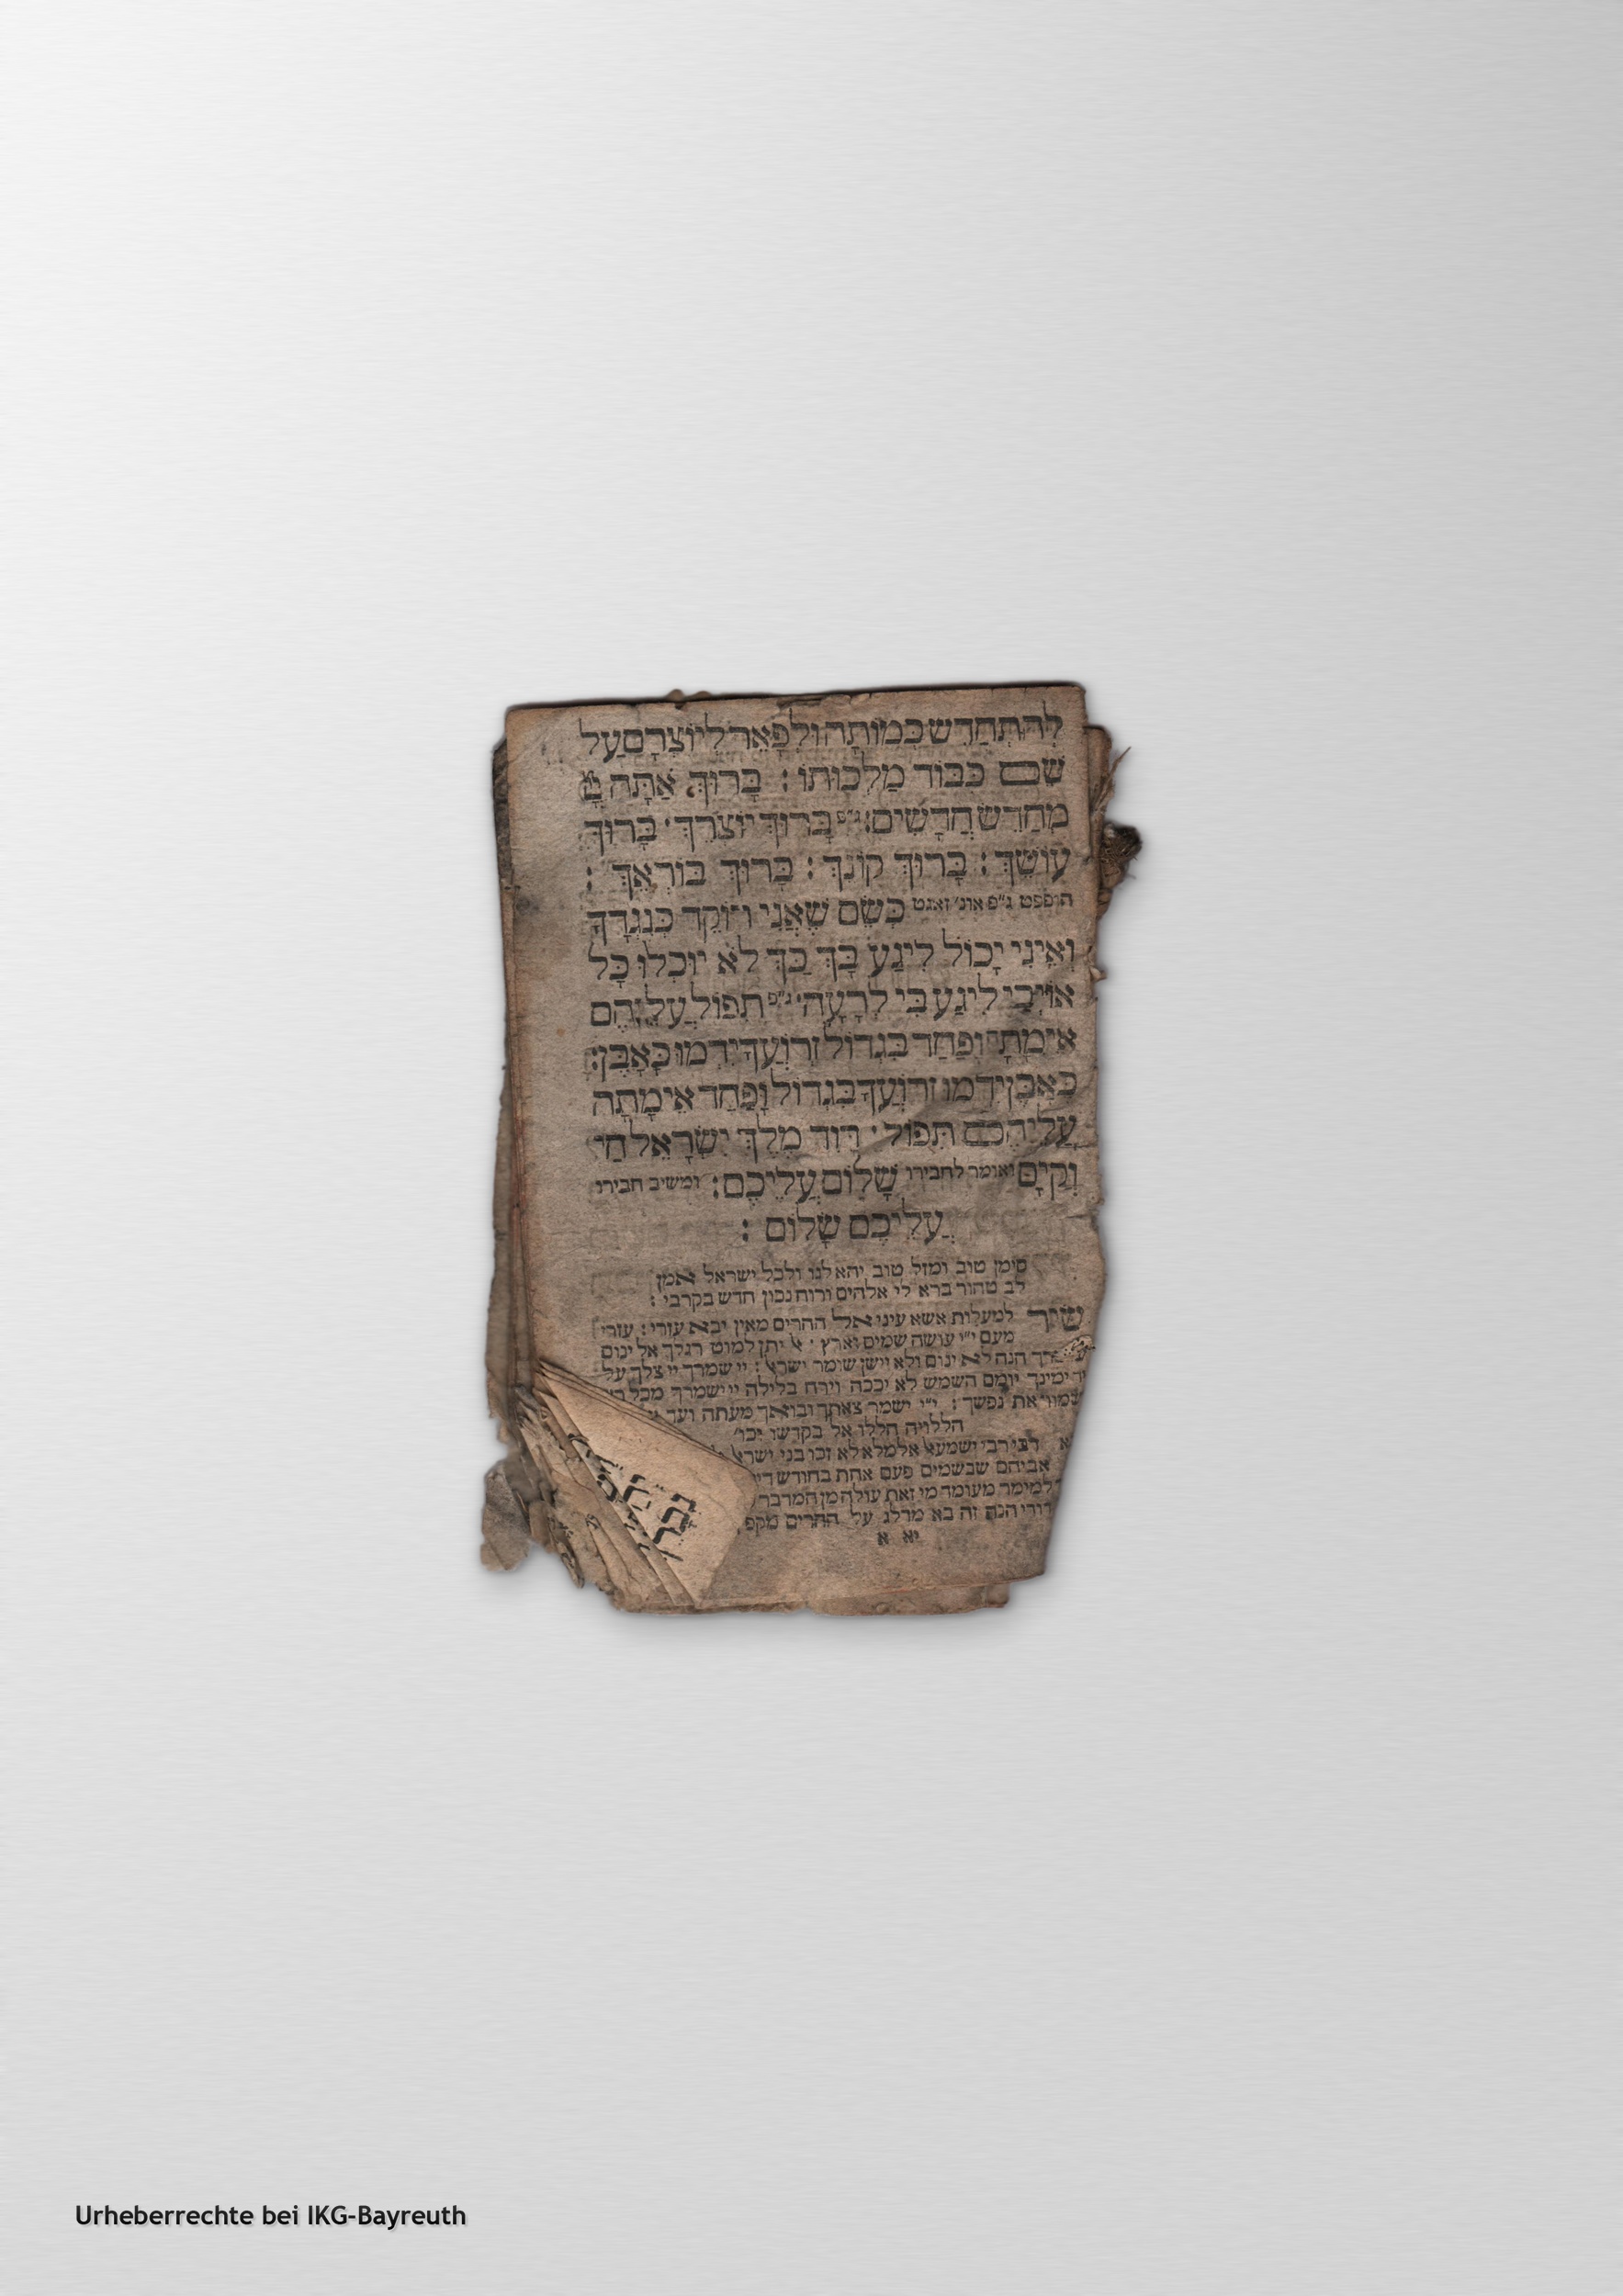 לְהִתְחַדֵּשׁ כְּמוֹתָהּ וּלְפָאֵר לְיוֹצְרָם עַל
שֵׁם כְּבוֹד מַלְכוּתוֹ : בָּרוּךְ אַתָּה יְיָ
מְחַדֵּשׁ חֳדָשִׁים: ג״פ בָּרוּךְ יוֹצְרֵךְ · בָּרוּךְ
עוֹשֵׂךְ : בָּרוּךְ קוֹנֵךְ : בָּרוּךְ בּוֹרְאֵךְ :
הופפט ג״פ אונ׳ זאגט כְּשֵׁם שֶׁאֲנִי רוֹקֵד כְּנֶגְדֵּךְ
וְאֵינִי יָכוֹל לִיגַּע בָּךְ כַּךְ לֹא יוּכְלוּ כָּל
אוֹיְבַי לִיגַּע בִּי לְרָעָה · ג״פ תִּפּוֹל עֲלֵיהֶם
אֵימָתָה וָפַחַד בִּגְדוֹל זְרוֹעֲךָ יִדְּמוּ כָּאָבֶן:
כָּאָבֶן יִדְּמוּ זְרוֹעֲךָ בִּגְדוֹל וָפַחַד אֵימָתָה
עֲלֵיהֶם תִּפּוֹל · דָּוִד מֶלֶךְ יִשְׂרָאֵל חַי
וְקַיָּם ואומר לחבירו שָׁלוֹם עֲלֵיכֶם: ומשיב חבירו
עֲלֵיכֶם שָׁלוֹם :
סימן טוב ומזל טוב יהא לנו ולכל ישראל אמן
לב טהור ברא לי אלהים ורוח נכון חדש בקרבי :
שיר למעלות אשא עיני אל ההרים מאין יבא עזרי : עזרי
מעם י״י עושה שמים וארץ · א׳ יתן למוט רגלך אל ינום
הנה לא ינום ולא יישן שומר ישרא׳ : יי שמרך יי צלך על
יד ימינך יומם השמש לא יככה וירח בלילה יי ישמרך מכל
ישמור את נפשך : י״י ישמר צאתך ובואך מעתה ועד
הללויה הללו אל בקדשו וכו׳
דבי רבי ישמעא׳ אלמלא לא זכו בני ישרא׳
אביהם שבשמים פעם אחת בחודש דיי
למימר מעומד מי זאת עולה מן המדבר
דודי הנה זה בא מדלג על ההרים מקפ
יא א
Urheberrechte bei IKG-Bayreuth